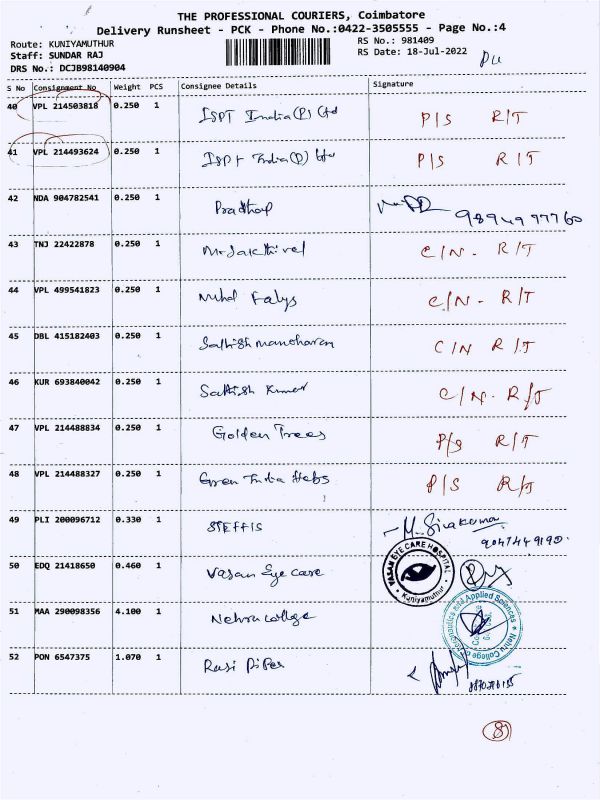 THE PROFESSIONAL COURIERS, Coimbatore
Delivery Runsheet - PCK - Phone No.:0422-3505555 - Page No.:4
Route: KUNIYAMUTHUR RS No.: 981409
Staff: SUNDAR RAJ RS Date: 18-Jul-2022
DRS No.: DCJB98140904
S No Consignment No Weight PCS Consignee Details Signature
40 VPL 214503818 0.250 1 ISPT India(P) Ltd P/S R/T
41 VPL 214493624 0.250 1 ISPT India(P) Ltd P/S R/T
42 NDA 904782541 0.250 1 Pradhap 9894997760
43 TNJ 22422878 0.250 1 Mr Sakthivel C/N - R/T
44 VPL 499541823 0.250 1 C/N - R/T
45 DBL 415182403 0.250 1 Sathish manoharan C/N R/T
46 KUR 693840042 0.250 1 Sathish Kumar C/N - R/T
47 VPL 214488834 0.250 1 Golden Trees P/S R/T
48 VPL 214488327 0.250 1 Green India P/S R/T
49 PLI 200096712 0.330 1 STEFFIS M. Sivakumar
50 EDQ 21418650 0.460 1 Vasan Eye care
VASAN EYE CARE HOSPITAL
Kuniyamuthur
51 MAA 290098356 4.100 1 Nehru college
Nehru College of Aeronautics and Applied Sciences
52 PON 6547375 1.070 1 Rasi Pipes
8